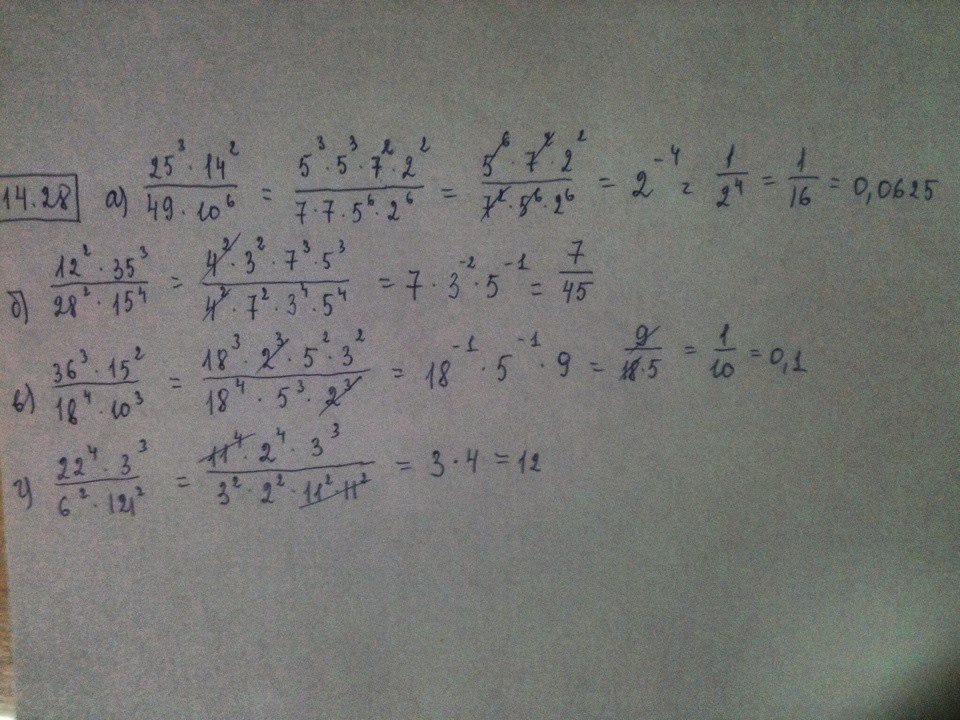 14.28 а) 25³·14² / 49·10⁶ = 5³·5³·7²·2² / 7·7·5⁶·2⁶ = 5⁶·7²·2² / 7²·5⁶·2⁶ = 2⁻⁴ = 1/2⁴ = 1/16 = 0,0625
б) 12²·35³ / 28²·15⁴ = 4²·3²·7³·5³ / 4²·7²·3⁴·5⁴ = 7·3⁻²·5⁻¹ = 7/45
в) 36³·15² / 18⁴·10³ = 18³·2³·5²·3² / 18⁴·5³·2³ = 18⁻¹·5⁻¹·9 = 9/18·5 = 1/10 = 0,1
г) 22⁴·3³ / 6²·121² = 11⁴·2⁴·3³ / 3²·2²·11²·11² = 3·4 = 12